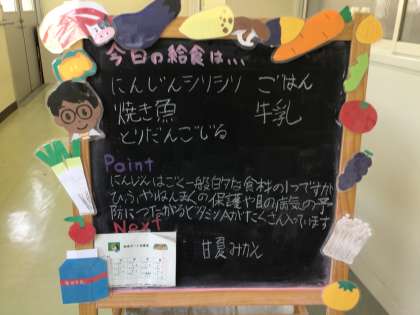 今日の給食は...
にんじんシリシリ ごはん
焼き魚 牛乳
とりだんごじる
Point
にんじんはごく一般的な食材の1つですが
ひふやねんまくの保護や目の病気の予
防につながるビタミンAがたくさん入っています
Next
甘夏みかん